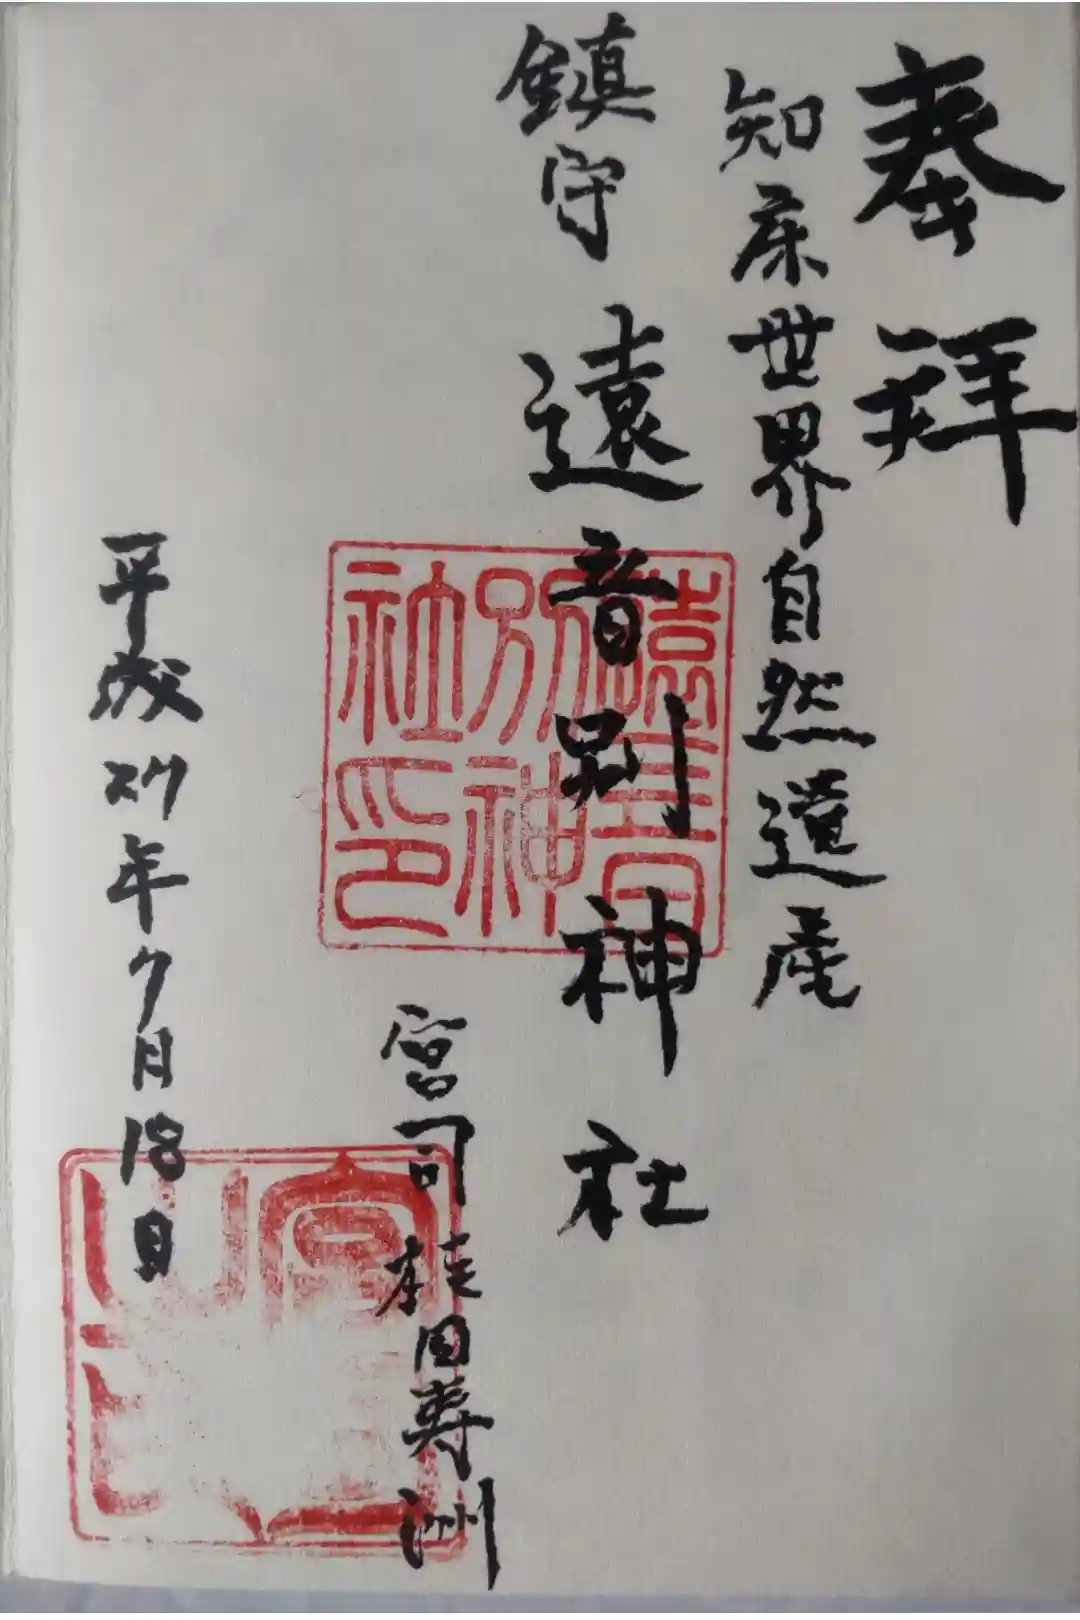 奉拝
知床世界自然遺産
鎮守
遠音別神社
遠音別神社印
宮司桂田寿洲
平成27年7月18日